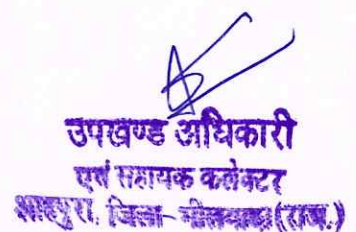 उपखण्ड अधिकारी
एवं सहायक कलेक्टर
शाहपुरा, जिला- भीलवाड़ा (राज.)